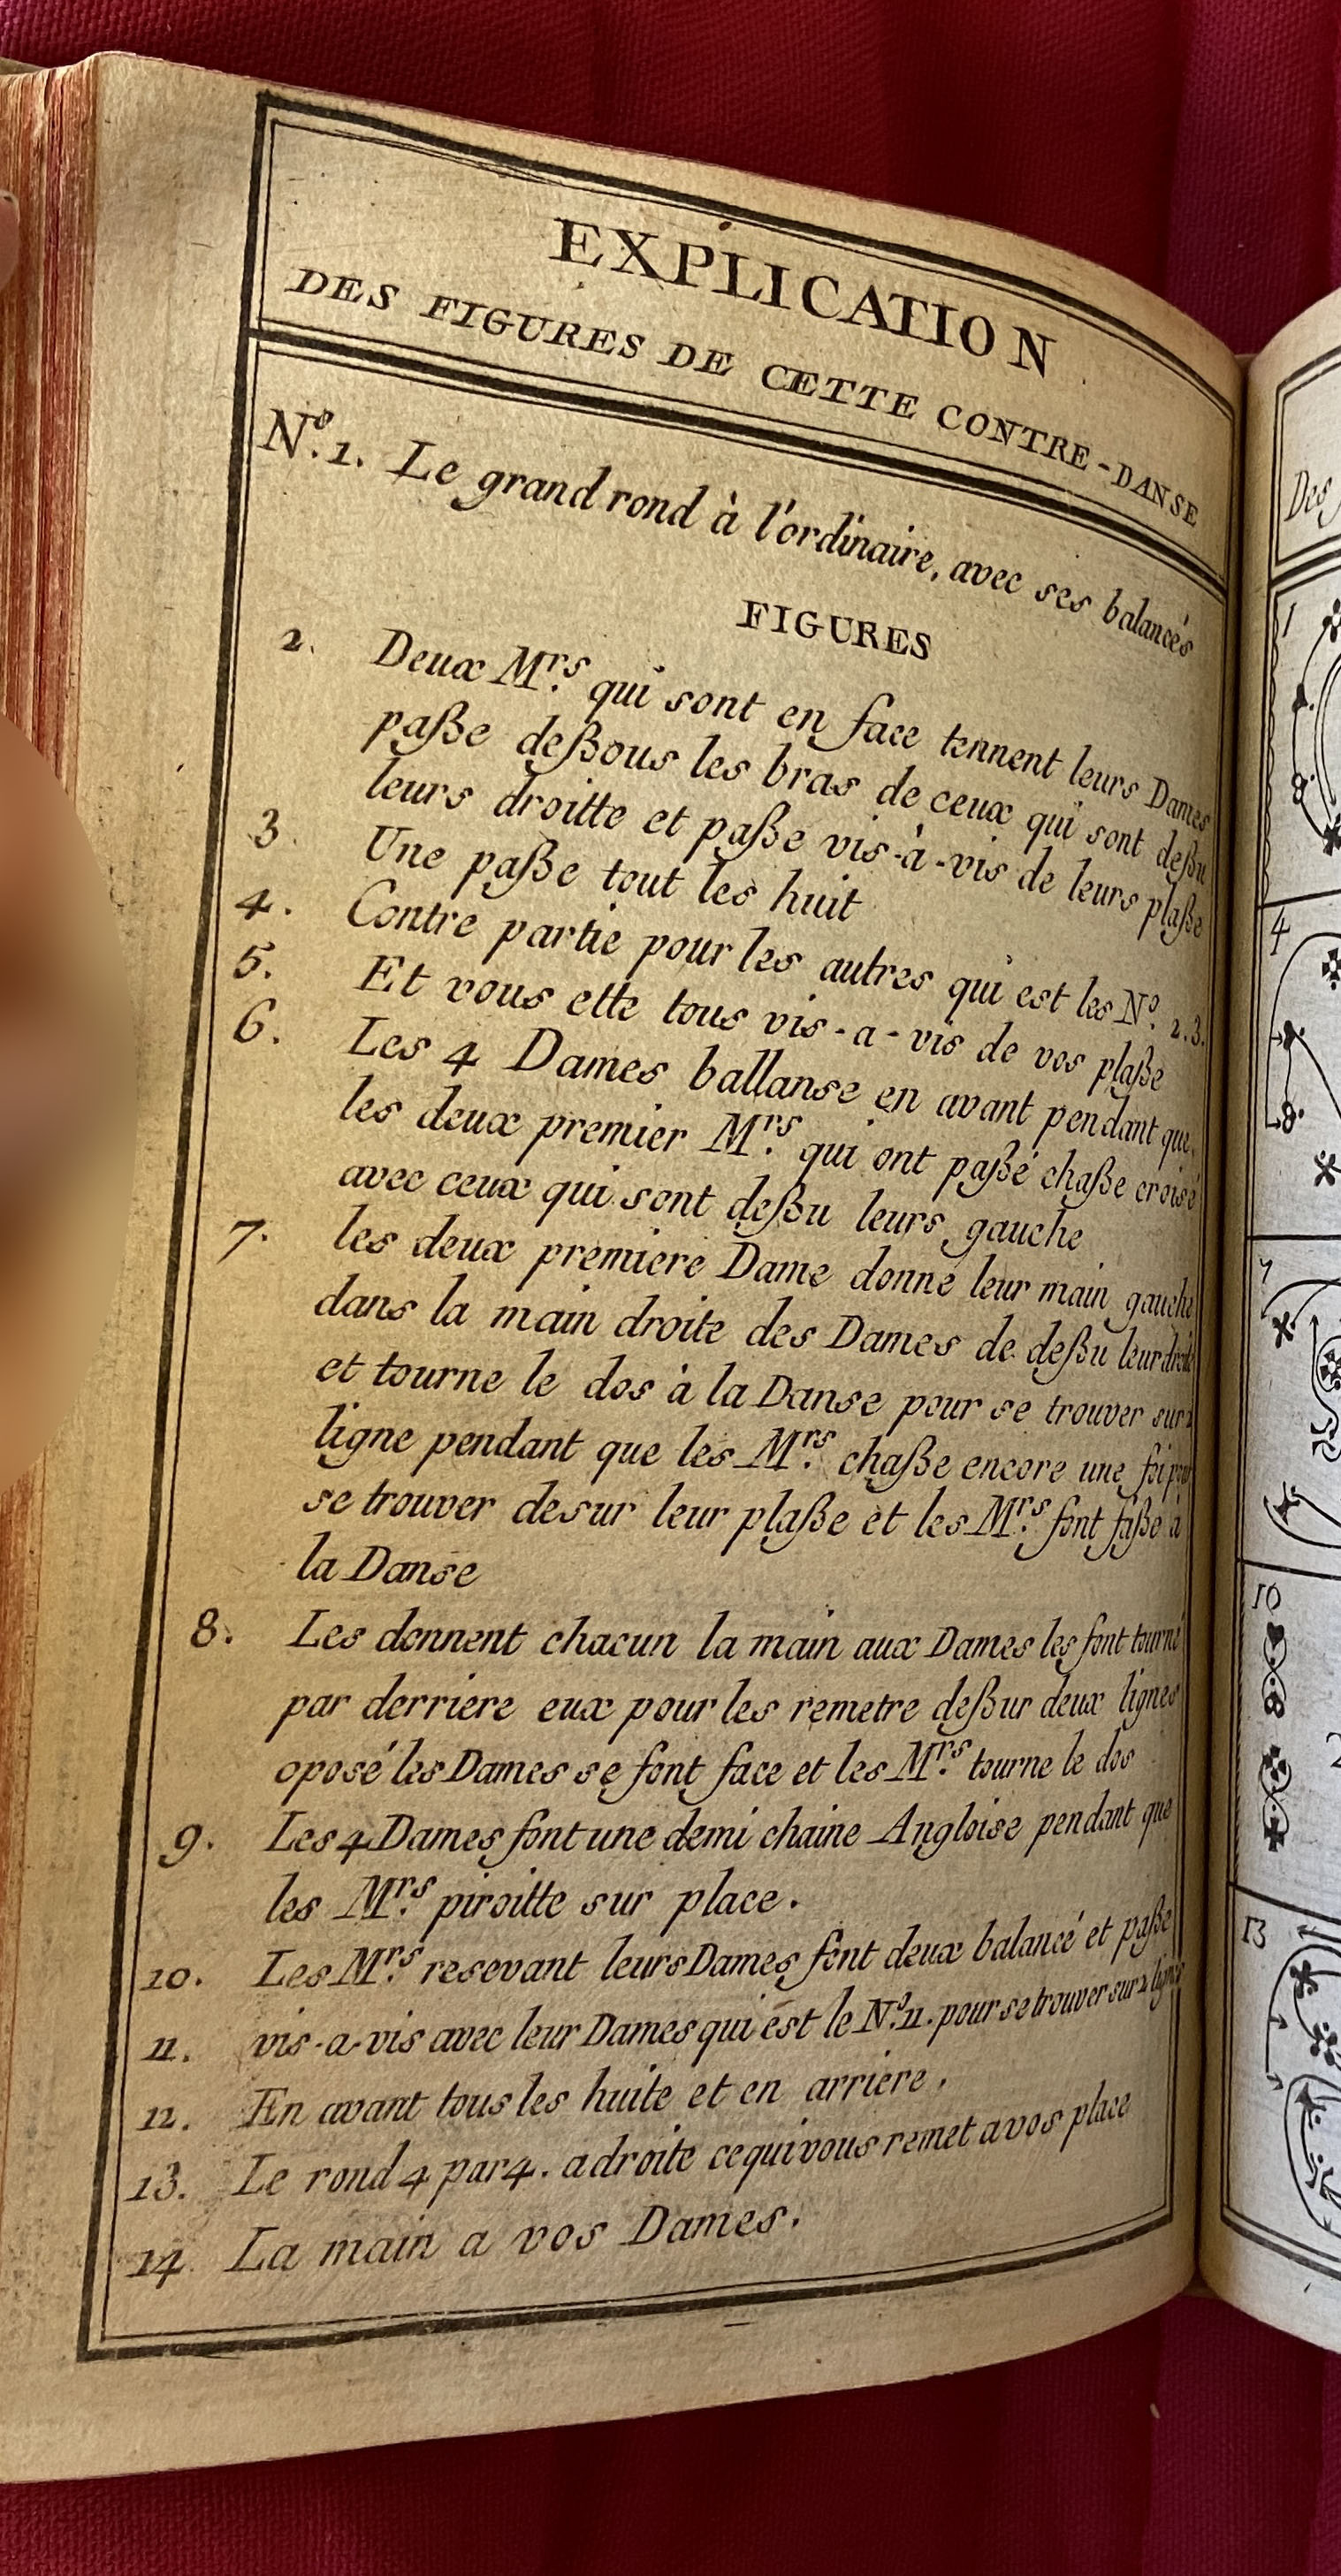 EXPLICATION
DES FIGURES DE CETTE CONTRE-DANSE
Nº. 1. Le grand rond à l'ordinaire, avec ses balancés
FIGURES
2. Deux Mrs. qui sont en face tennent leurs Dames
paße deßous les bras de ceux qui sont deßu
leurs droitte et paße vis-à-vis de leurs plaße
3. Une paße tout les huit
4. Contre partie pour les autres qui est les Nº. 2.3.
5. Et vous ette tous vis-a-vis de vos plaße
6. Les 4 Dames ballanse en avant pendant que
les deux premier Mrs. qui ont paßé chaße croisé
avec ceux qui sont deßu leurs gauche
7. les deux premiere Dame donne leur main gauche
dans la main droite des Dames de deßu leur droite
et tourne le dos à la Danse pour se trouver sur 2
ligne pendant que les Mrs. chaße encore une foi pour
se trouver desur leur plaße et les Mrs. font faße à
la Danse
8. Les donnent chacun la main aux Dames les font tourné
par derriere eux pour les remetre deßur deux lignes
oposé les Dames se font face et les Mrs. tourne le dos
9. Les 4 Dames font une demi chaine Angloise pendant que
les Mrs. piroitte sur place.
10. Les Mrs. resevant leurs Dames font deux balancé et paße
11. vis-a-vis avec leur Dames qui est le Nº. 11. pour se trouver sur 2 lignes
12. En avant tous les huite et en arriere.
13. Le rond 4 par 4. a droite ce qui vous remet a vos place
14. La main a vos Dames.
Des
1
8
4
8
7
10
8
2
13